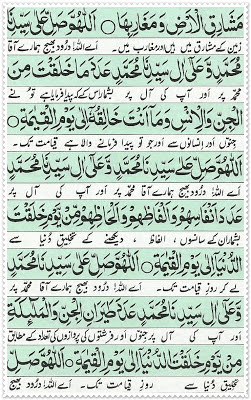 مَشَارِقِ الْاَرْضِ وَمَغَارِبِهَا ○ اَللّٰهُمَّ صَلِّ عَلٰى سَيِّدِنَا
زمین کے مشارق میں ہیں اور مغارب میں ہیں۔ اے اللہ! درود بھیج ہمارے آقا
مُحَمَّدٍ وَّعَلٰى اٰلِ سَيِّدِنَا مُحَمَّدٍ عَدَدَ مَا خَلَقْتَ مِنَ
محمدؐ پر اور آپ کی آل پر بشمار اس کے پیدا فرمایا ہے تو نے
الْجِنِّ وَالْاِنْسِ وَمَا اَنْتَ خَالِقُهٗ اِلٰى يَوْمِ الْقِيٰمَةِ ○
جنوں اور انسانوں سے اور جو تو پیدا فرمانے والا ہے قیامت تک۔
اَللّٰهُمَّ صَلِّ عَلٰى سَيِّدِنَا مُحَمَّدٍ وَّعَلٰى اٰلِ سَيِّدِنَا مُحَمَّدٍ
اے اللہ! درود بھیج ہمارے آقا محمدؐ پر اور آپ کی آل پر
عَدَدَ اَنْفَاسِهِمْ وَاَلْفَاظِهِمْ وَاَلْحَاظِهِمْ مِنْ يَّوْمِ خَلَقْتَ
بشمار ان کے سانسوں ، الفاظ ، دیکھنے کے تخلیق دنیا سے
الدُّنْيَا اِلٰى يَوْمِ الْقِيٰمَةِ ○ اَللّٰهُمَّ صَلِّ عَلٰى سَيِّدِنَا مُحَمَّدٍ
لے کر روزِ قیامت تک۔ اے اللہ! درود بھیج ہمارے آقا محمدؐ پر
وَّعَلٰى اٰلِ سَيِّدِنَا مُحَمَّدٍ عَدَدَ طَيَرَانِ الْجِنِّ وَالْمَلٰٓئِكَةِ
اور آپ کی آل پر جنوں اور فرشتوں کی پروازوں کی تعداد کے مطابق
مِنْ يَّوْمِ خَلَقْتَ الدُّنْيَا اِلٰى يَوْمِ الْقِيٰمَةِ ○ اَللّٰهُمَّ صَلِّ
تخلیق دنیا سے روزِ قیامت تک۔ اے اللہ! درود بھیج